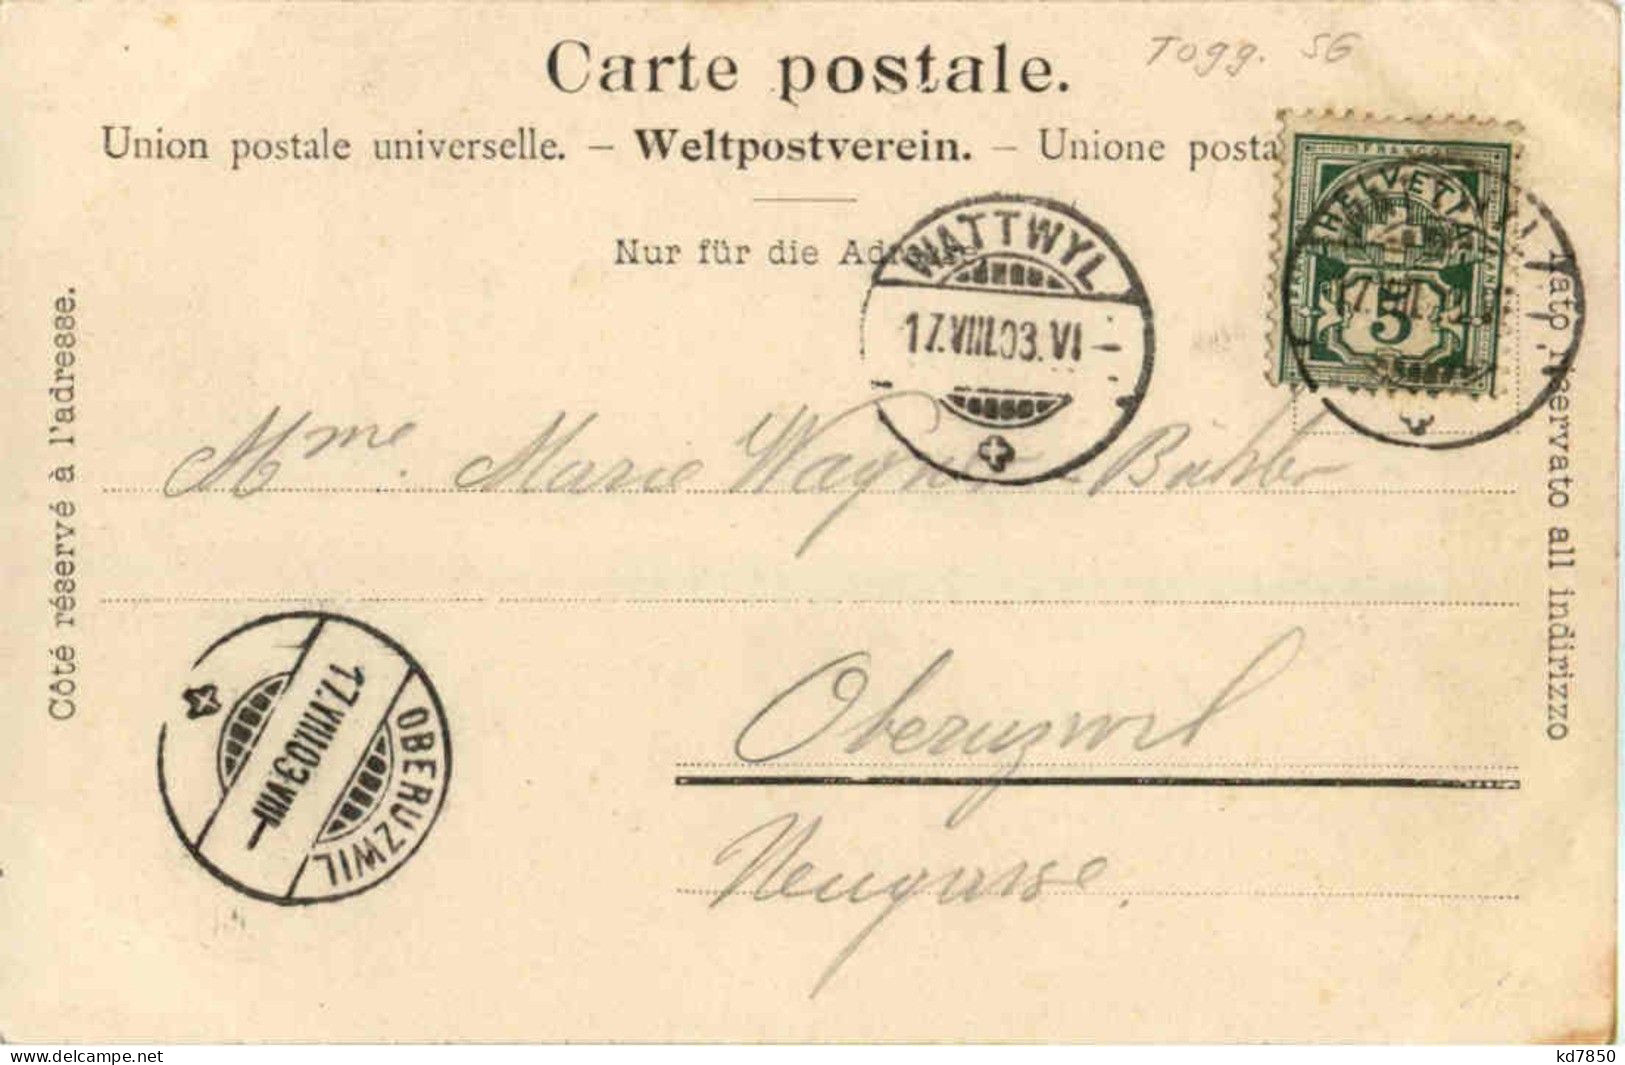 Carte postale.
Togg. SG
Union postale universelle. – Weltpostverein. – Unione posta
Nur für die Adresse
Côté réservé à l'adresse.
Lato riservato all indirizzo
FRANCO
HELVETIA
5
WATTWYL
17.VIII.03.VI
Mme. Marie Wagner-Bühler
Oberuzwil
Neugasse.
OBERUZWIL
17.VIII.03.VIII
www.delcampe.net
kd7850